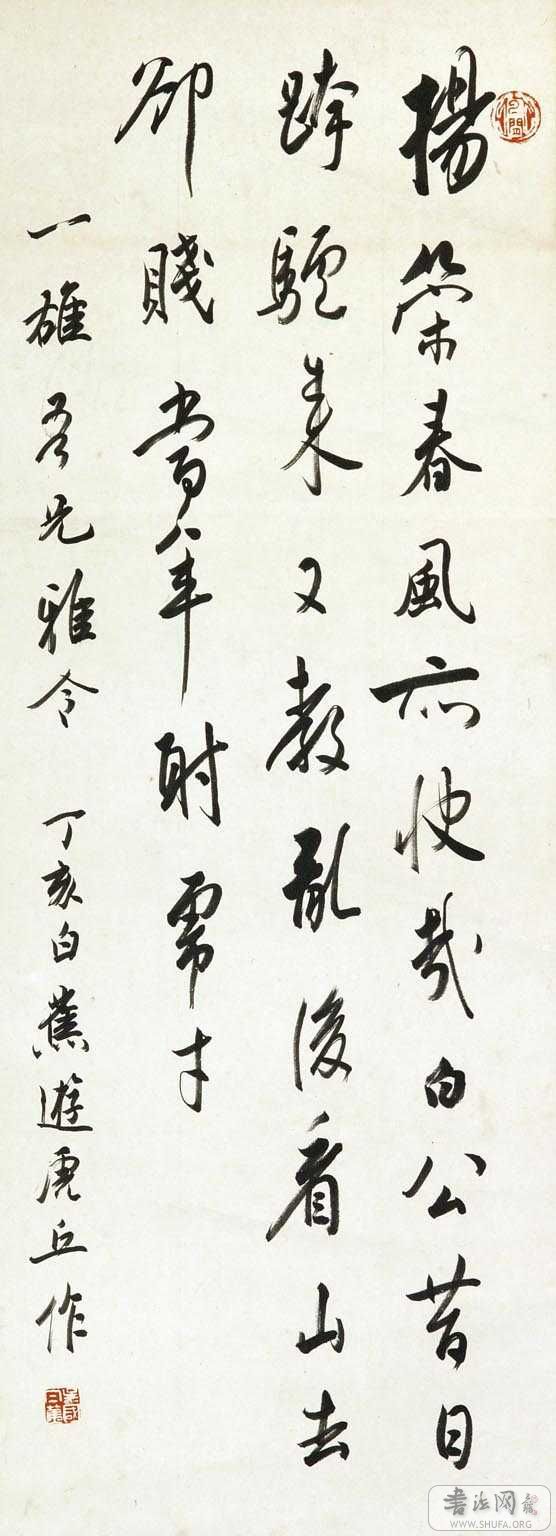 揚策春風亦快哉白公昔日
跨驢來又教亂後看山去
卻賤當年射虎才
一雄吾兄雅令 丁亥白蕉遊虎丘作
書法网
WWW.SHUFA.ORG